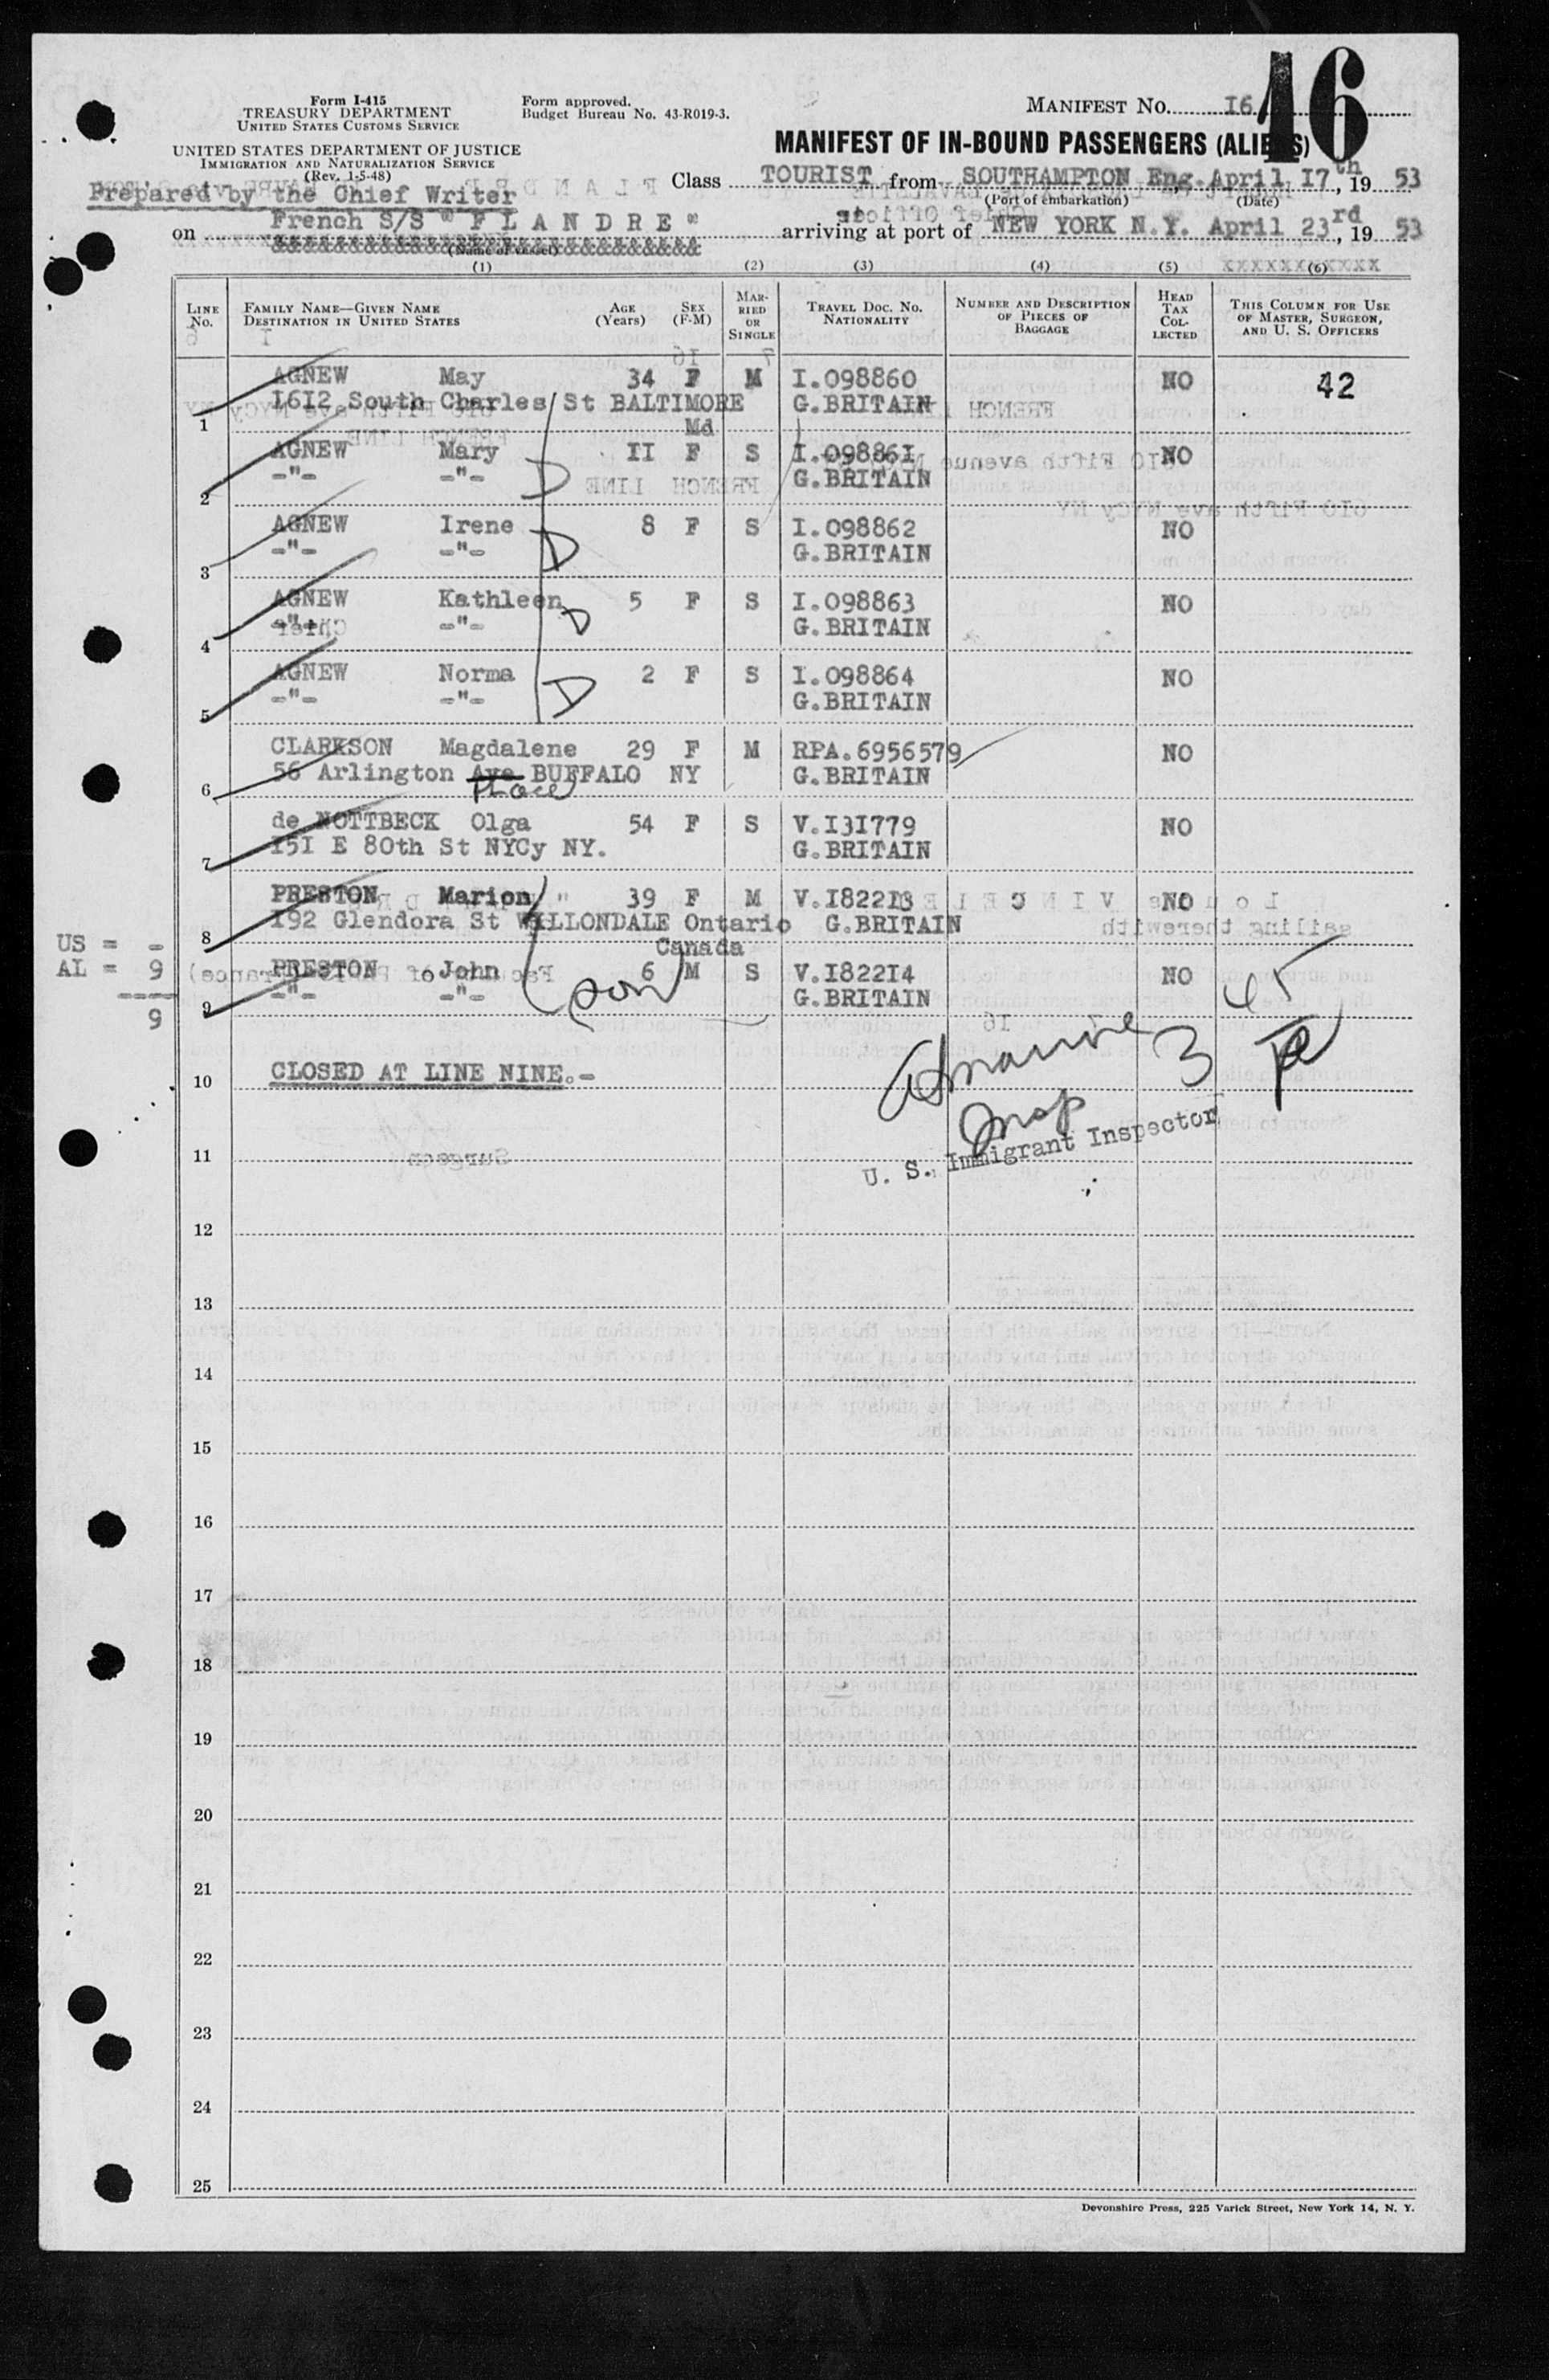 Form I-415
TREASURY DEPARTMENT
UNITED STATES CUSTOMS SERVICE
UNITED STATES DEPARTMENT OF JUSTICE
IMMIGRATION AND NATURALIZATION SERVICE
(Rev. 1-5-48)
Form approved.
Budget Bureau No. 43-R019-3.
MANIFEST No. I6
16
MANIFEST OF IN-BOUND PASSENGERS (ALIENS)
Prepared by the Chief Writer
Class TOURIST from SOUTHAMPTON Eng. April I7th, 19 53
(Port of embarkation) (Date)
on French S/S " F L A N D R E " arriving at port of NEW YORK N.Y. April 23rd, 19 53
(Name of vessel)
(1) (2) (3) (4) (5) (6)
LINE No. FAMILY NAME—GIVEN NAME DESTINATION IN UNITED STATES AGE (Years) SEX (F-M) MARRIED OR SINGLE TRAVEL DOC. NO. NATIONALITY NUMBER AND DESCRIPTION OF PIECES OF BAGGAGE HEAD TAX COLLECTED THIS COLUMN FOR USE OF MASTER, SURGEON, AND U. S. OFFICERS
AGNEW May 34 F M I.098860 NO 42
1 I6I2 South Charles St BALTIMORE Md G.BRITAIN
AGNEW Mary II F S I.09886I NO
2 -"- -"- D G.BRITAIN
AGNEW Irene 8 F S I.098862 NO
3 -"- -"- D G.BRITAIN
AGNEW Kathleen 5 F S I.098863 NO
4 -"- -"- D G.BRITAIN
AGNEW Norma 2 F S I.098864 NO
5 -"- -"- D G.BRITAIN
CLARKSON Magdalene 29 F M RPA.6956579 NO
6 56 Arlington Ave Place BUFFALO NY G.BRITAIN
de NOTTBECK Olga 54 F S V.I3I779 NO
7 I5I E 80th St NYCy NY. G.BRITAIN
PRESTON Marion 39 F M V.I822I3 NO
8 I92 Glendora St WILLONDALE Ontario Canada G.BRITAIN
US = -
AL = 9
9
PRESTON John 6 M S V.I822I4 NO
9 -"- -"- (son) G.BRITAIN
45
3
10 CLOSED AT LINE NINE.-
Insp
U. S. Immigrant Inspector
11
12
13
14
15
16
17
18
19
20
21
22
23
24
25
Devonshire Press, 225 Varick Street, New York 14, N. Y.